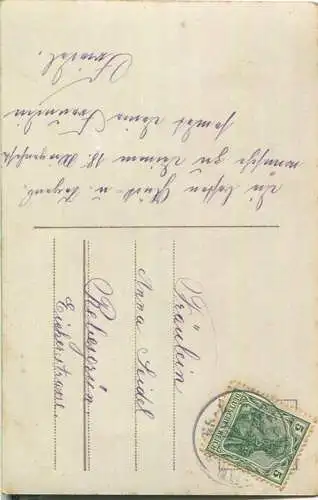 Die besten Glück- u. Segens-
wünsche zu Deinem 18. Wiegenfeste
sendet Deine Freundin
Fräulein
Anna Seidel
Eichenstrasse.
5 5